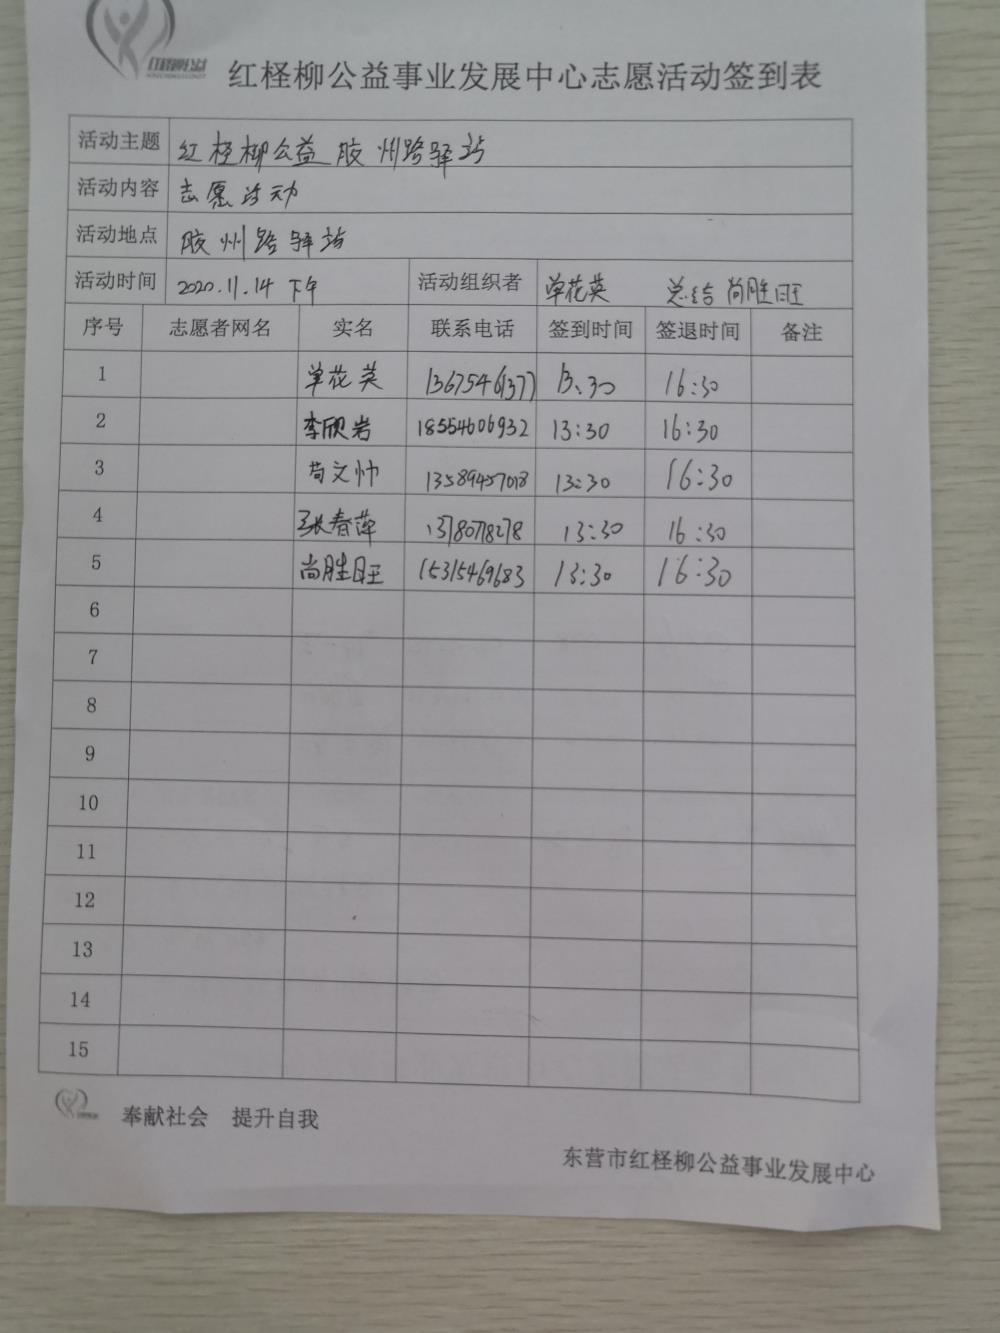 红柽柳公益
红柽柳公益事业发展中心志愿活动签到表
活动主题 红柽柳公益 胶州路驿站
活动内容 志愿活动
活动地点 胶州路驿站
活动时间 2020.11.14 下午 活动组织者 单花英 总结 尚胜旺
序号 志愿者网名 实名 联系电话 签到时间 签退时间 备注
1 单花英 13675461377 13:30 16:30
2 李欣岩 18554606932 13:30 16:30
3 苟文帅 13589457018 13:30 16:30
4 张春萍 13780778278 13:30 16:30
5 尚胜旺 15315469683 13:30 16:30
6
7
8
9
10
11
12
13
14
15
奉献社会 提升自我
东营市红柽柳公益事业发展中心